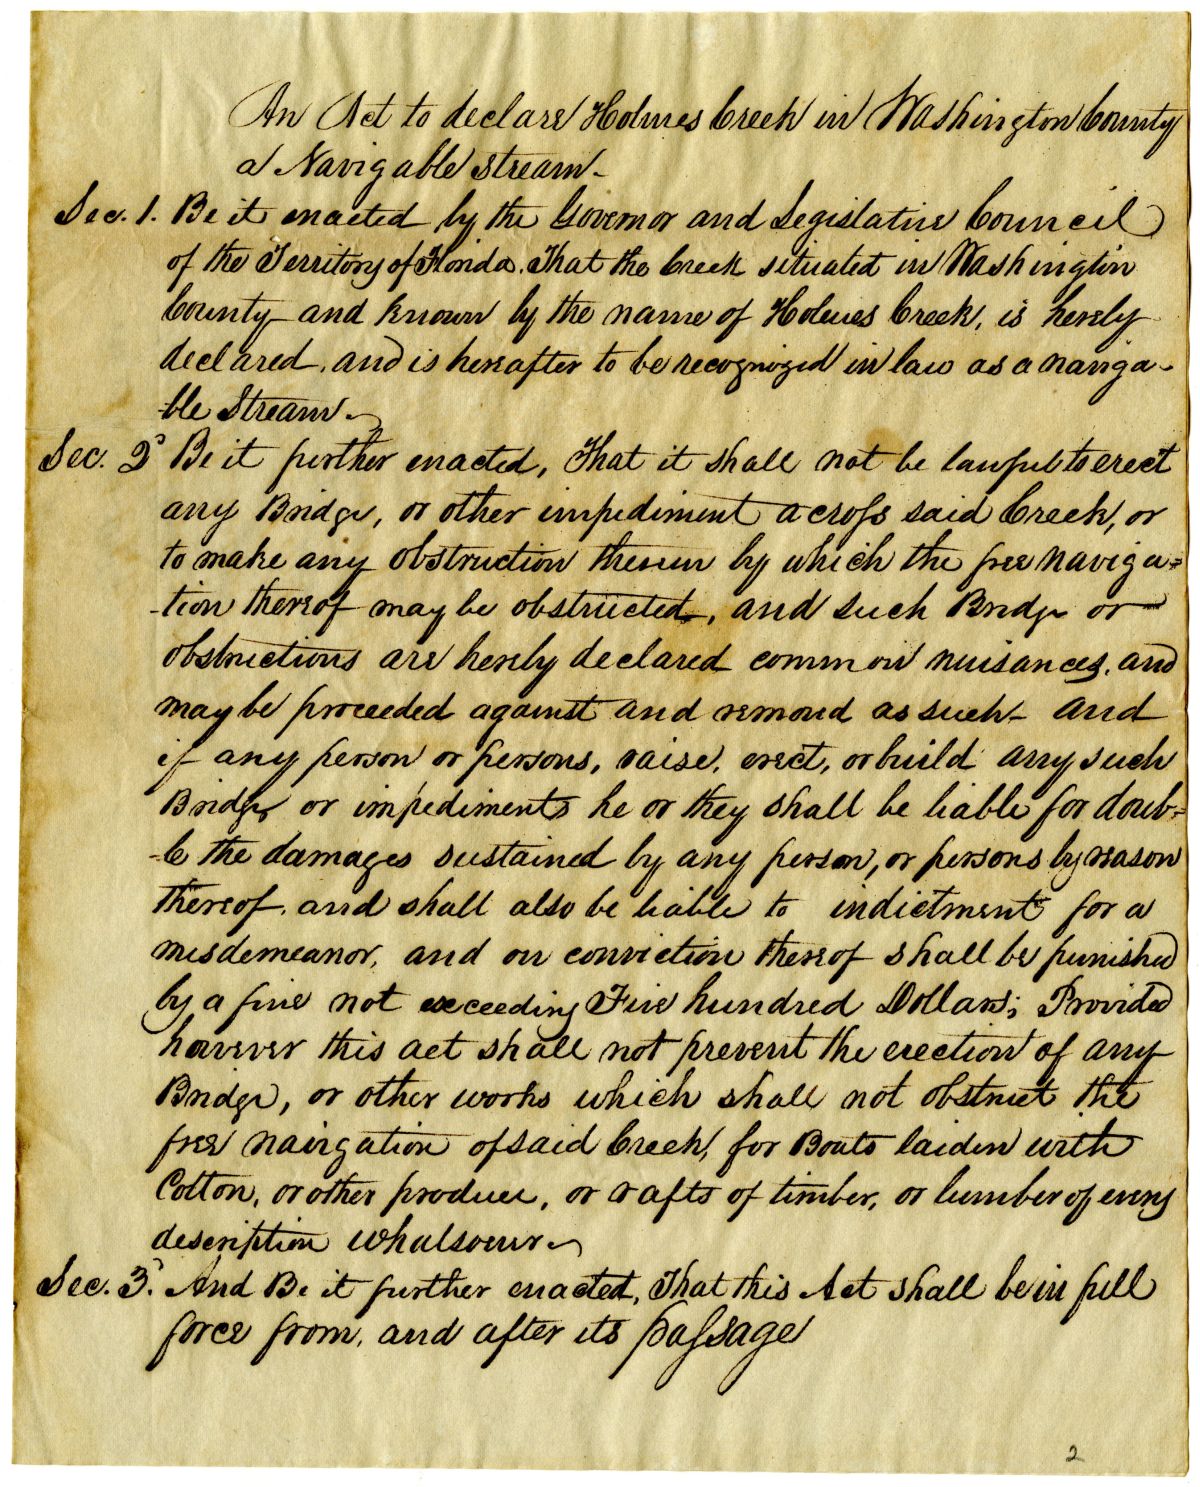 An Act to declare Holmes Creek in Washington County
a Navigable Stream.
Sec. 1. Be it enacted by the Governor and Legislative Council
of the Territory of Florida. That the Creek situated in Washington
County and known by the name of Holmes Creek, is hereby
declared, and is hereafter to be recognized in law as a naviga-
-ble Stream.
Sec. 2 Be it further enacted, That it shall not be lawful to erect
any Bridge, or other impediment across said Creek, or
to make any obstruction therein by which the free naviga=
-tion thereof may be obstructed, and such Bridge or
obstructions are hereby declared common nuisances, and
may be proceeded against and removed as such - and
if any person or persons, raise, erect, or build any such
Bridge or impediments he or they shall be liable for doub=
-le the damages sustained by any person, or persons by reason
thereof, and shall also be liable to indictment for a
misdemeanor, and on conviction thereof shall be punished
by a fine not exceeding Five hundred Dollars; Provided
however this act shall not prevent the erection of any
Bridge, or other works which shall not obstruct the
free navigation of said Creek, for Boats laiden with
Cotton, or other produce, or rafts of timber, or lumber of every
description whatsoever.
Sec. 3. And Be it further enacted, That this Act shall be in full
force from, and after its passage
2